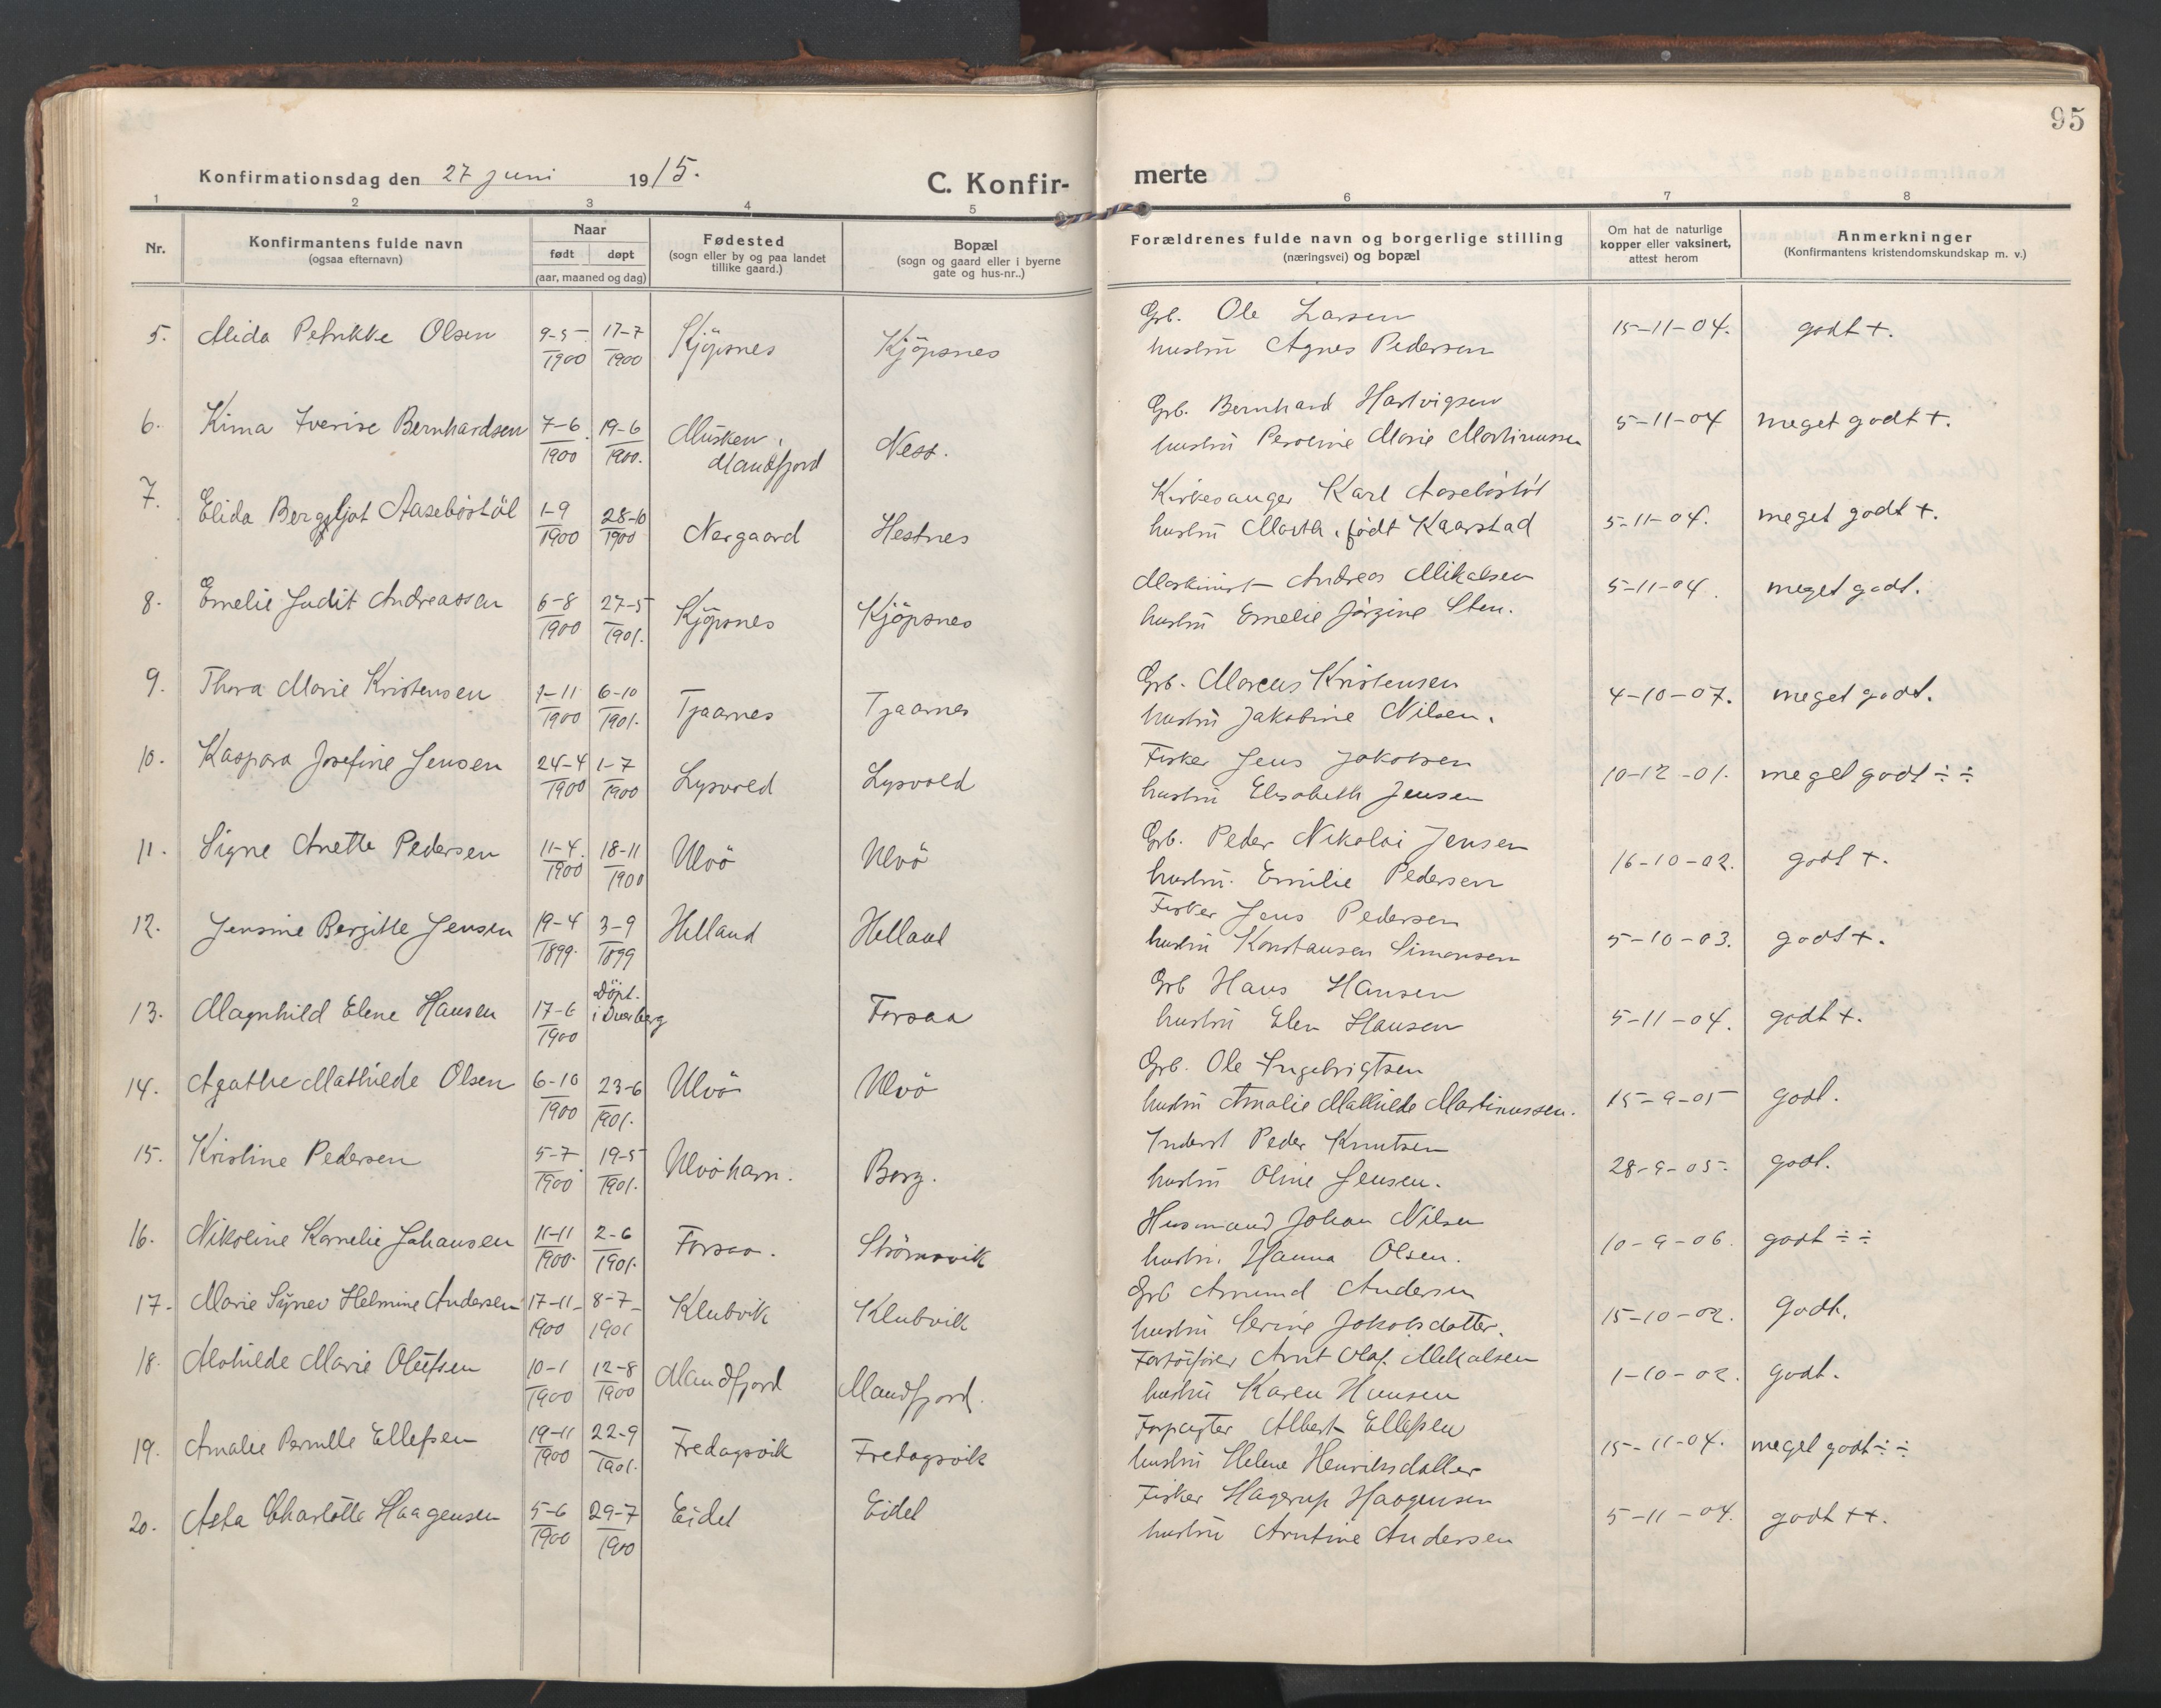 95
Konfirmationsdag den 27 juni 1915.
C. Konfir-
merte
1 2 3 4 5 6 7 8
Nr.
Konfirmantens fulde navn
(ogsaa efternavn)
Naar
født døpt
(aar, maaned og dag)
Fødested
(sogn eller by og paa landet
tillike gaard.)
Bopæl
(sogn og gaard eller i byerne
gate og hus-nr..)
Forældrenes fulde navn og borgerlige stilling
(næringsvei) og bopæl
Om hat de naturlige
kopper eller vaksinert,
attest herom
Anmerkninger
(Konfirmantens kristendomskundskap m. v.)
5. Alida Petrikke Olsen 9-5 1900 17-7 1900 Kjöpsnes Kjöpsnes
Grb. Ole Larsen
hustru Agnes Pedersen
15-11-04. godt +.
6. Kima Iverise Bernhardsen 7-6 1900 19-6 1900. Musken, Mandfjord Ness.
Grb. Bernhard Hartvigsen
hustru Peroline Marie Martinussen
5-11-04 meget godt +.
7. Elida Bergljot Aasebostöl 1-9 1900 28-10 1900 Nergaard Hestnes
Kirkesanger Karl Aasebostöl
hustru Marth. födt Kaarstad
5-11-04. meget godt +.
8. Emelie Judit Andreassen 6-8 1900 27-5 1901. Kjöpsnes Kjöpsnes
Maskinist Andreas Mikalsen
hustru Emelie Jörgine Sten.
5-11-04. meget godt.
9. Thora Marie Kristensen 1-11 1900 6-10 1901. Tjaarnes Tjaarnes
Grb. Marcus Kristensen
hustru Jakobine Nilsen.
4-10-07. meget godt.
10. Kaspara Josefine Jensen 24-4 1900 1-7 1900 Lysvold Lysvold
Fisker Jens Jakobsen
hustru Elisabeth Jensen
10-12-01. meget godt ÷ ÷
11. Signe Anette Pedersen 11-4. 1900 18-11 1900 Ulvö Ulvö
Grb. Peder Nikolai Jensen
hustru. Emilie Pedersen
16-10-02. godt +.
12. Jensine Bergitte Jensen 19-4 1899. 3-9 1899 Helland Helland
Fisker Jens Pedersen
hustru Konstansen Simonsen
5-10-03. godt +.
13. Magnhild Elene Hansen 17-6 1900 Döpt. i Dverberg Forsaa
Grb Hans Hansen
hustru Elen Hansen
5-11-04. godt +.
14. Agathe Mathilde Olsen 6-10 1900 23-6 1901. Ulvö Ulvö
Grb. Ole Ingebrigtsen
hustru Amalie Mathilde Martinussen.
15-9-05 godt.
15. Kristine Pedersen 5-7 1900 19-5 1901. Ulvöhavn. Borg.
Inderst Peder Knutsen
hustru Oline Jensen.
28-9-05. godt.
16. Nikoline Kornelie Johansen 11-11 1900. 2-6 1901. Forsaa. Strömsvik
Husmand Johan Nilsen
hustru. Hanna Olsen.
10-9-06. godt ÷ ÷
17. Marie Synev Helmine Andersen 17-11- 1900 8-7- 1901 Klubvik Klubvik
Grb Amund Andersen
hustru Serine Jakobsdatter.
15-10-02. Godt.
18. Mathilde Marie Olufsen 10-1 1900 12-8 1900 Mandfjord Mandfjord.
Fartöiförer Arnt Olaf Mikalsen
hustru Karen Hansen
1-10-02. godt.
19. Amalie Pernille Ellefsen 19-11 1900 22-9 1901. Fredagsvik Fredagsvik
Forpagter Albert Ellefsen
hustru Helene Henriksdatter
15-11-04. meget godt ÷ ÷
20. Asta Charlotte Haagensen 5-6 1900 29-7 1900 Eidet Eidet
Fisker Hagerup Haagensen
hustru Arntine Andersen
5-11-04. godt ++.